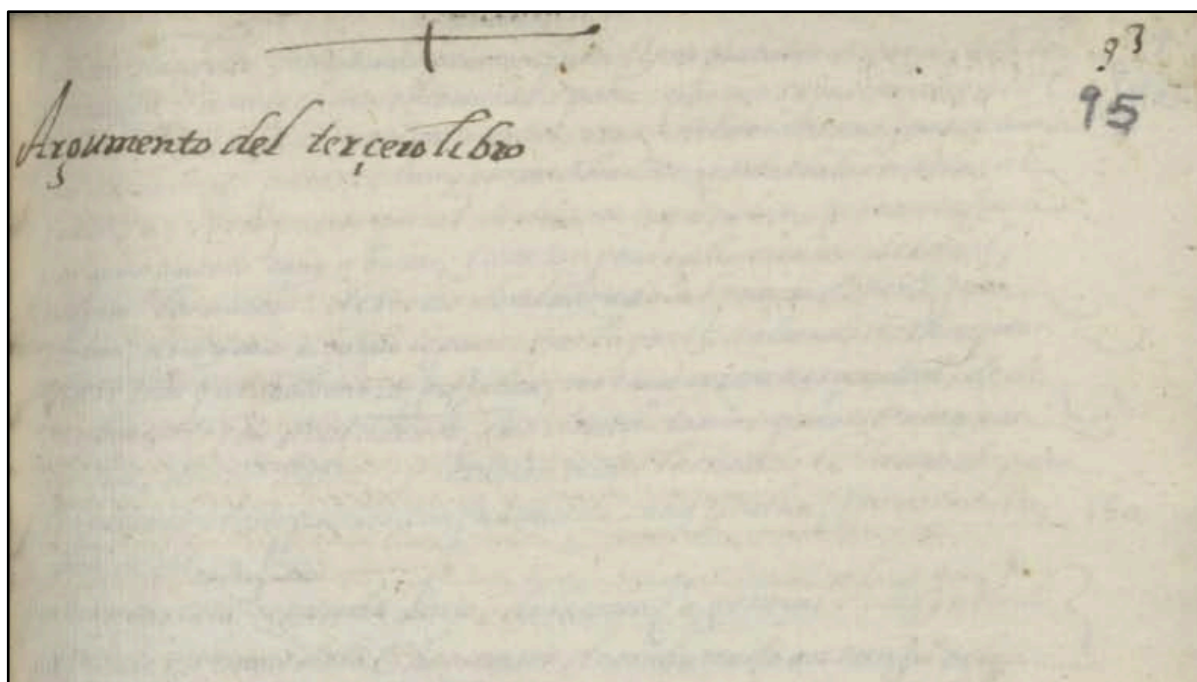 93
95
Argumento del terçero libro